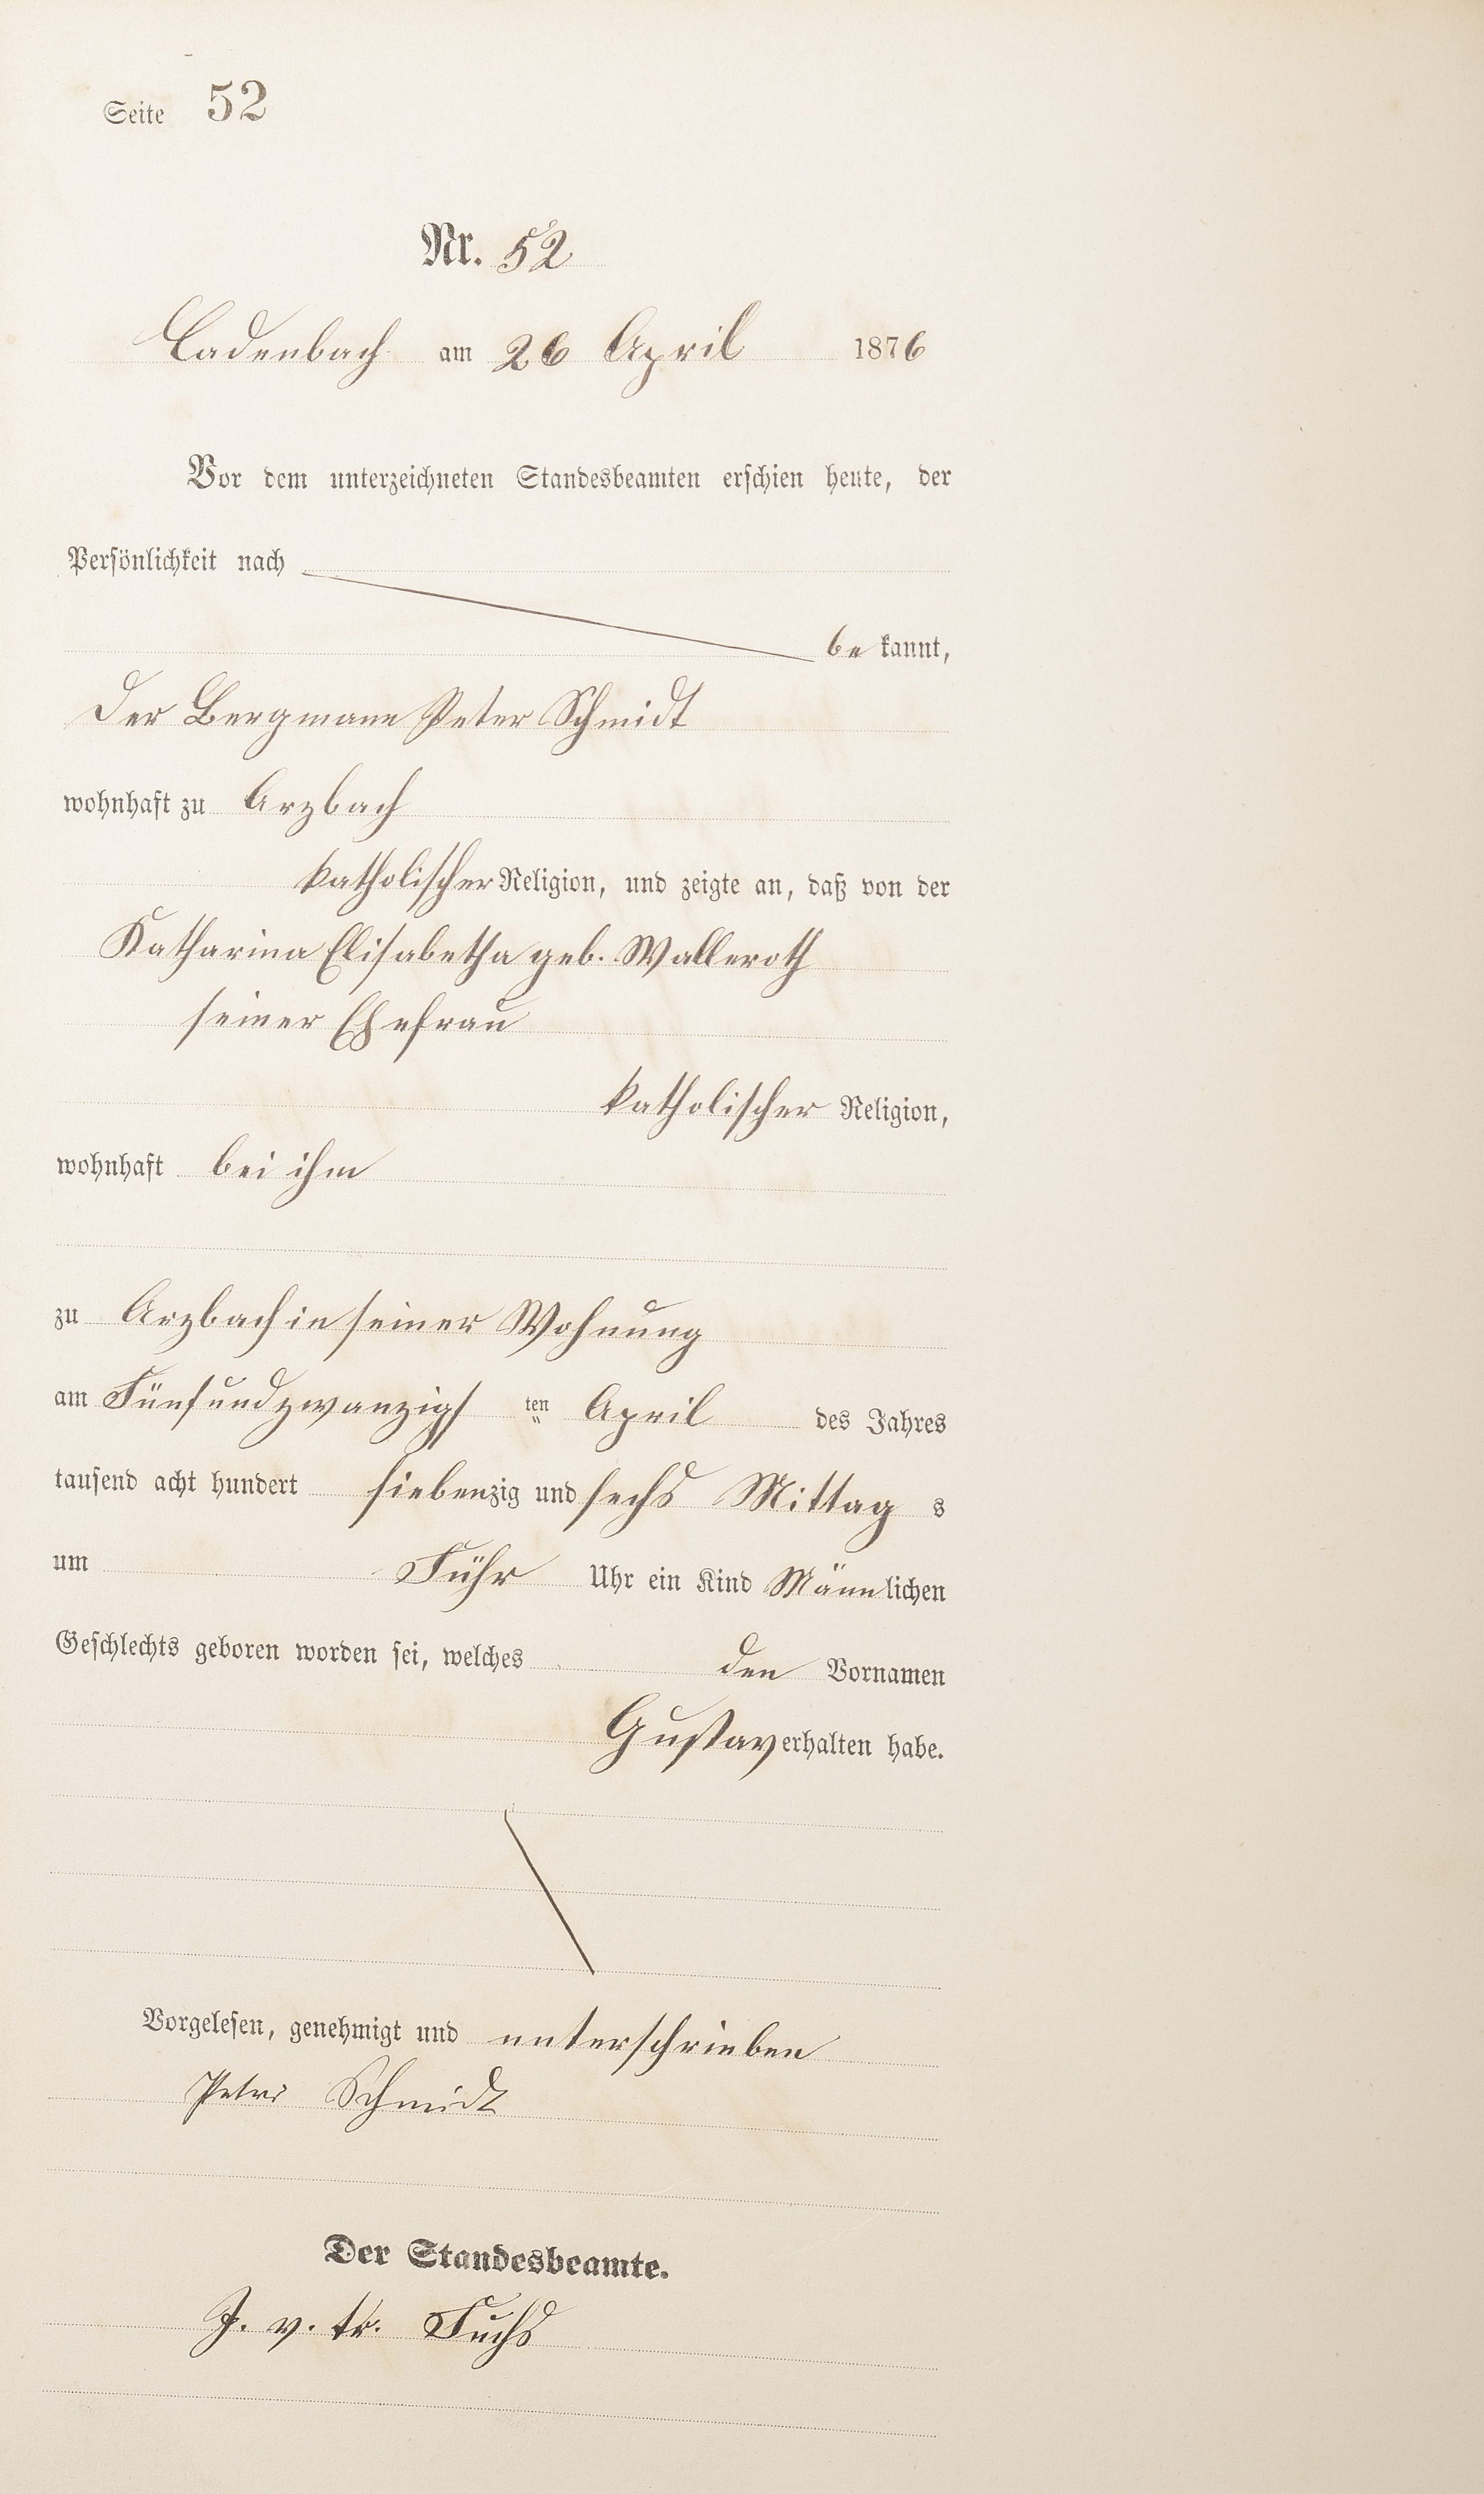 Seite 52
Nr. 52
Cadenbach am 26 April 1876
Vor dem unterzeichneten Standesbeamten erschien heute, der
Persönlichkeit nach
be kannt,
Der Bergmann Peter Schmidt
wohnhaft zu Arzbach
katholischer Religion, und zeigte an, daß von der
Katharina Elisabetha geb. Walleroth
seiner Ehefrau
katholischer Religion,
wohnhaft bei ihm
zu Arzbach in seiner Wohnung
am Fünfundzwanzigs ten April des Jahres
tausend acht hundert siebenzig und sechs Mittag s
um Führ Uhr ein Kind Männlichen
Geschlechts geboren worden sei, welches den Vornamen
Gustav erhalten habe.
Vorgelesen, genehmigt und unterschrieben
Peter Schmidt
Der Standesbeamte.
J. v. tr. Fuchs